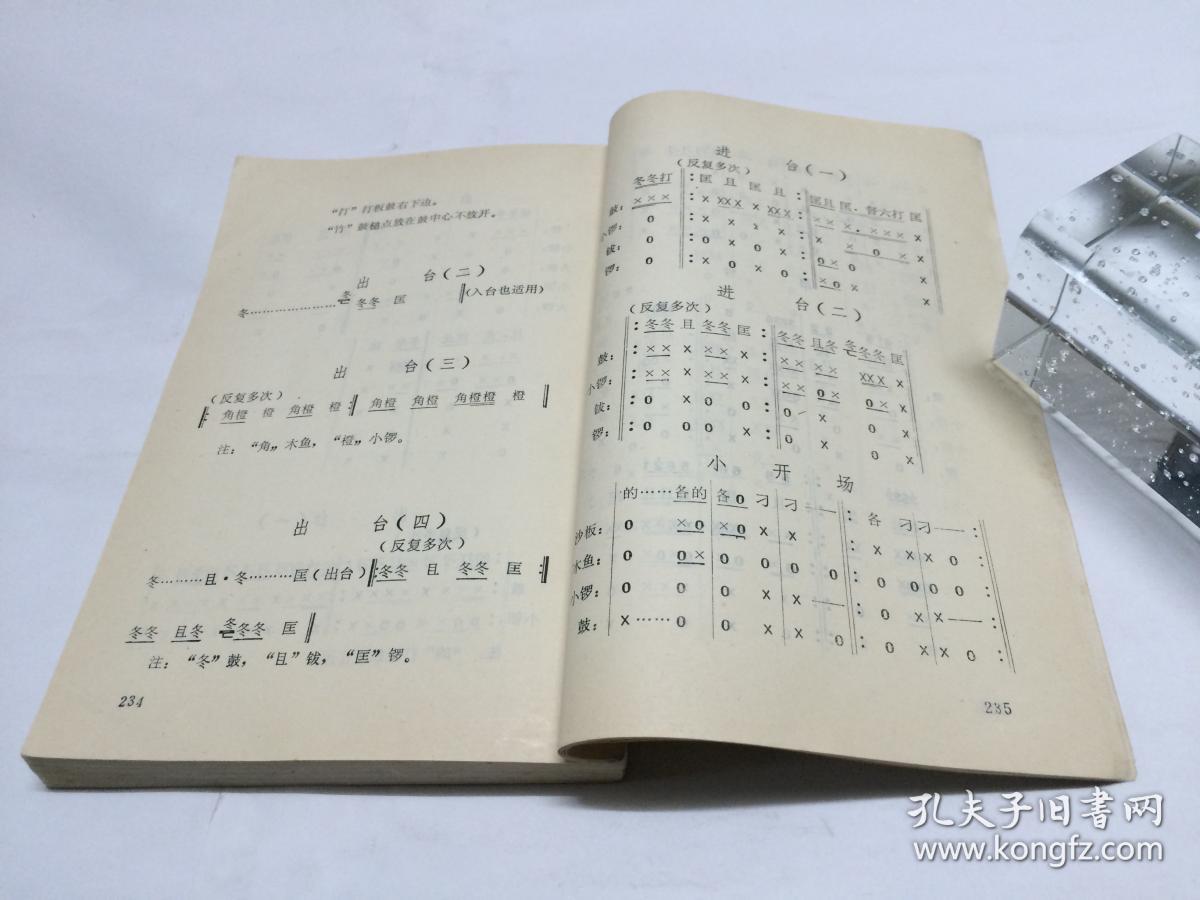 “打”打板鼓右下边。
“竹”鼓槌点放在鼓中心不放开。
出 台(二)
冬………………冬冬冬 匡 ‖(入台也适用)
出 台(三)
(反复多次)
‖: 角橙 橙 角橙 橙 :‖ 角橙 角橙 角橙橙 橙 ‖
注: “角”木鱼, “橙”小锣。
出 台(四)
(反复多次)
冬………且·冬………匡(出台)‖:冬冬 且 冬冬 匡 :‖
冬冬 且冬 冬冬冬 匡‖
注: “冬”鼓, “且”钹, “匡”锣。
234
进 台(一)
(反复多次)
冬冬打 ‖: 匡 且 匡 且 :‖ 匡且 匡·督六打 匡
鼓: ××× x xxx x xxx : x x x·x x x x
小锣: 0
钹: 0
锣: 0
进 台(二)
(反复多次)
‖: 冬冬 且 冬冬 匡 :‖ 冬冬 且冬 冬冬冬 匡
鼓: ×× x ×× x : ×× ×× xxx x
小锣:
钹: 0 x 0 0
锣: 0 0 0 x
小 开 场
的……各的 各0 刁 刁 — : 各 刁刁 — :
沙板: 0 x0 x0 x x
木鱼: 0 0x 0 0 0 0 0
小锣: 0 0 0 x x —
鼓: X……0 0 X X 0 : 0 x xx 0 :
235
孔夫子旧书网
www.kongfz.com